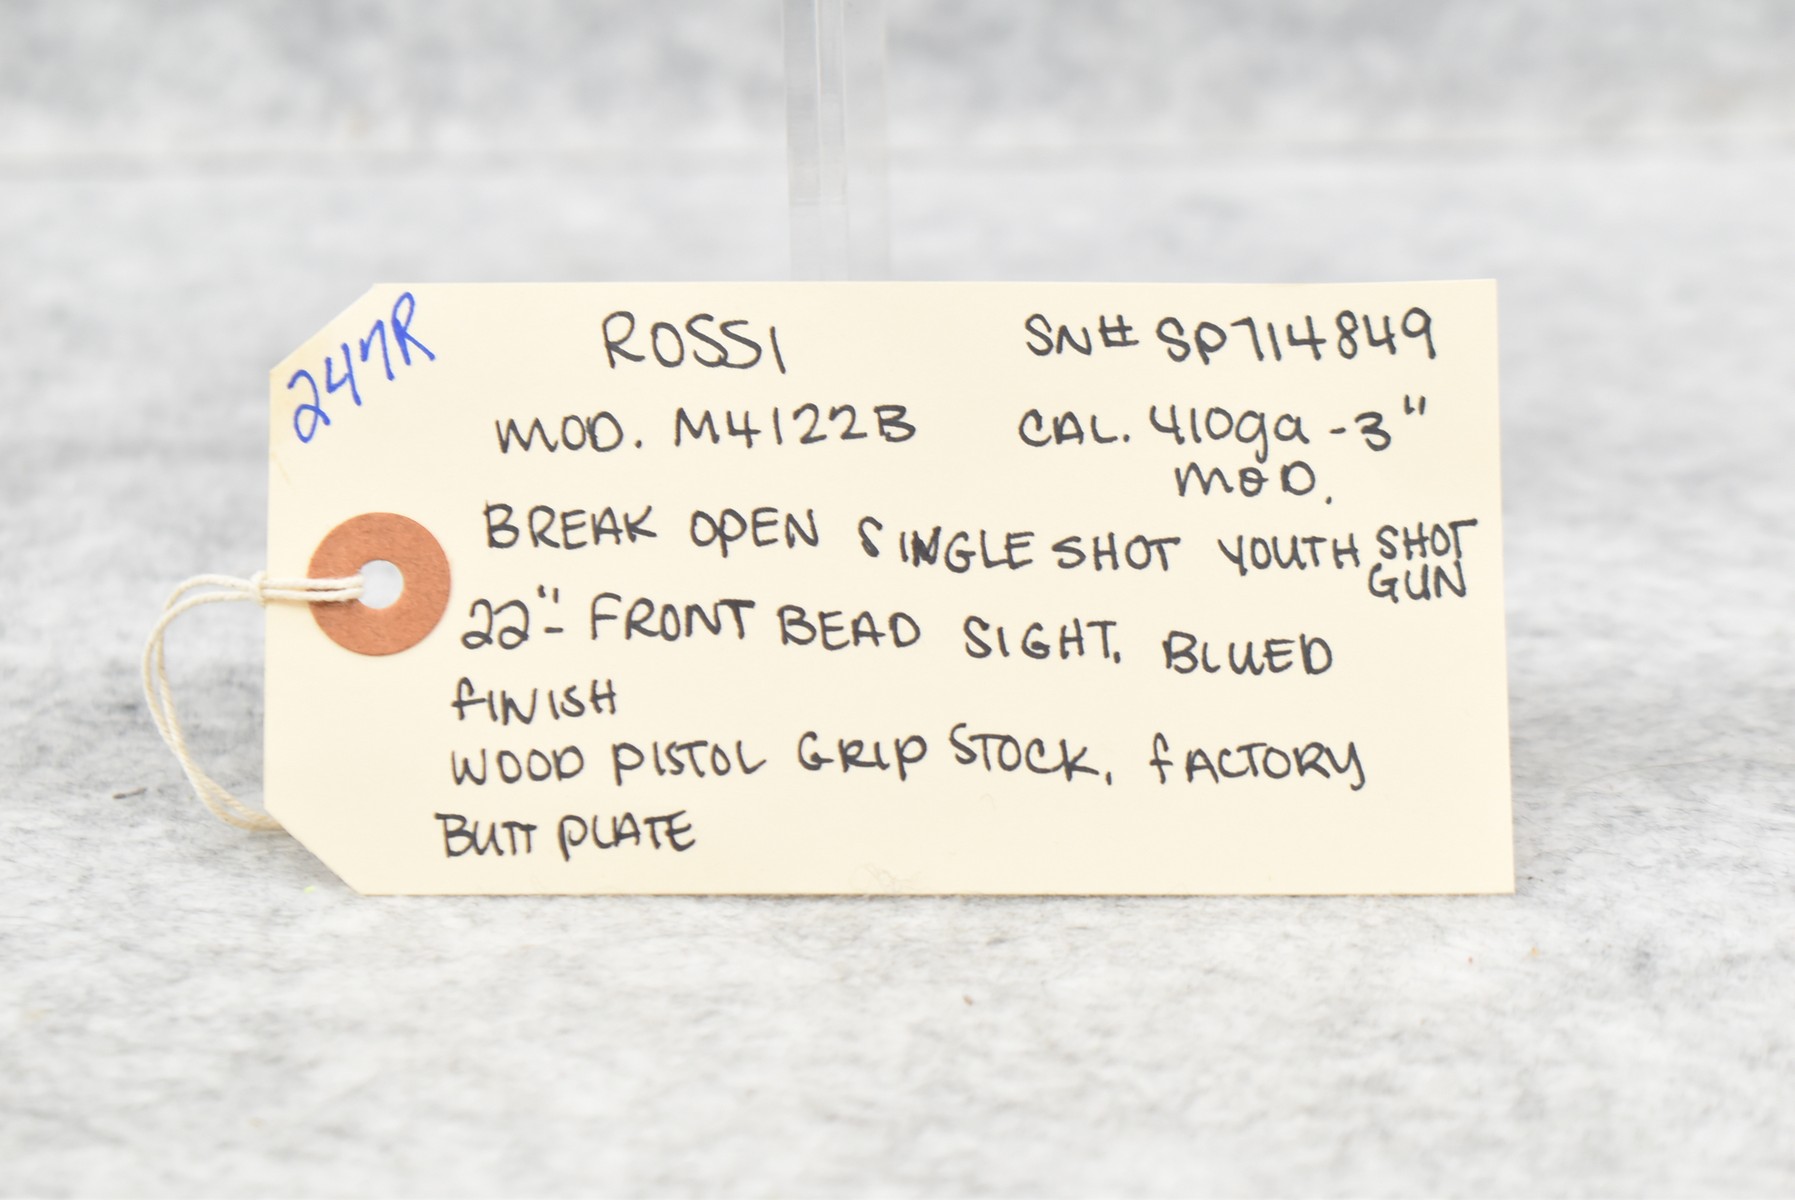 247R
ROSSI SN# SP714849
MOD. M4122B CAL. 410ga -3"
MOD.
BREAK OPEN SINGLE SHOT YOUTH SHOT
GUN
22"- FRONT BEAD SIGHT. BLUED
FINISH
WOOD PISTOL GRIP STOCK. FACTORY
BUTT PLATE